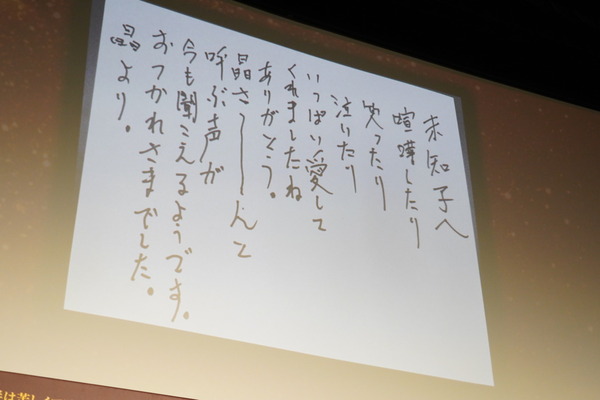 未知子へ
喧嘩したり
笑ったり
泣いたり
いっぱい愛して
くれましたね
ありがとう。
晶さ〜〜んと
呼ぶ声が
今も聞こえるようです。
おつかれさまでした。
晶より。